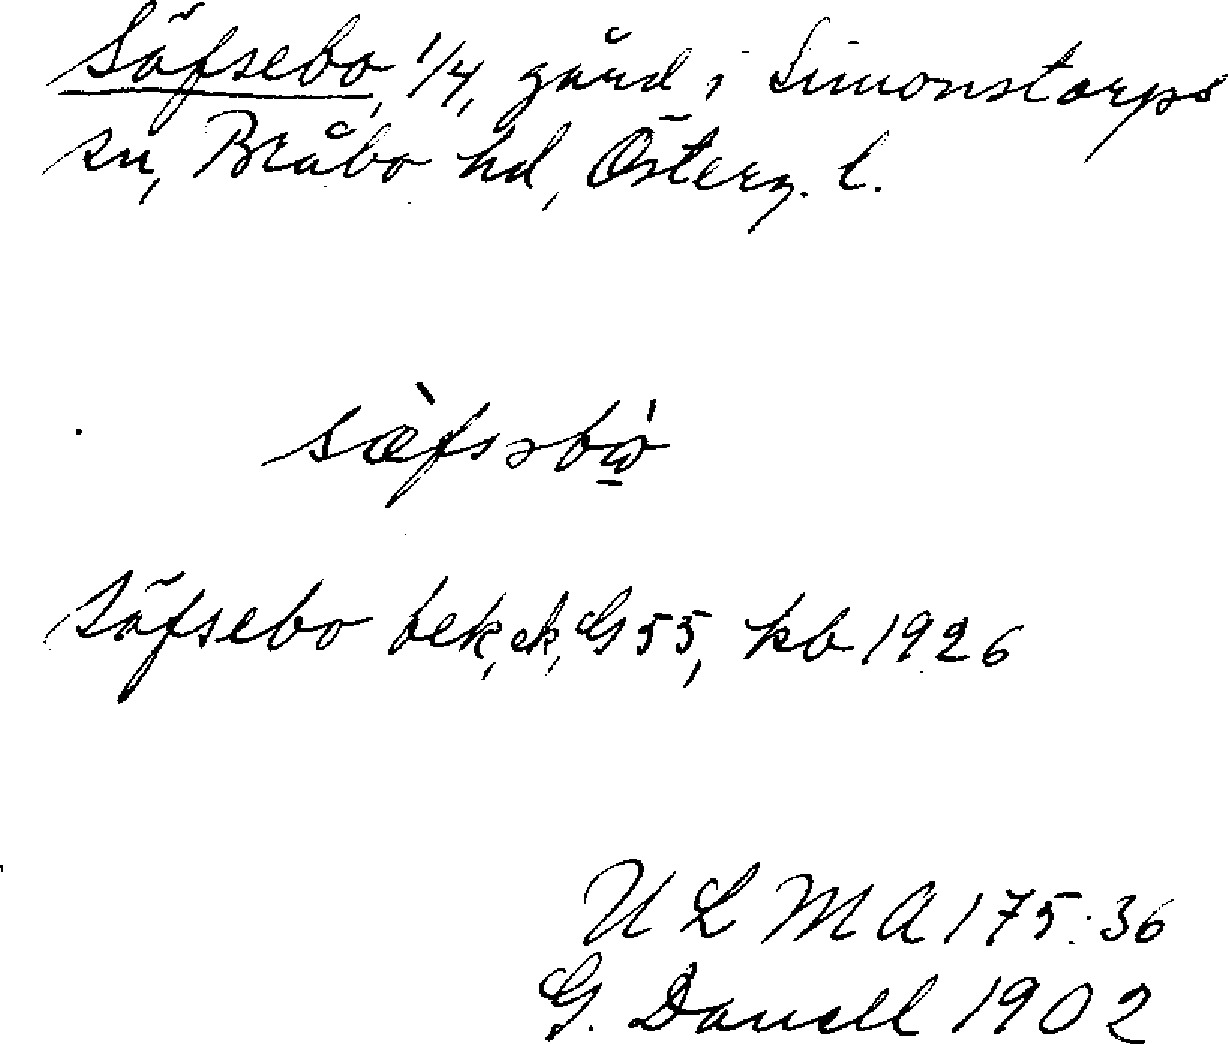 Säfsebo, 1/4, gård i Simonstorps
sn, Bråbo hd, Österg. l.
Säfsebo bek, ek, G 55, kb 1926
ULMA 175:36
G. Danell 1902